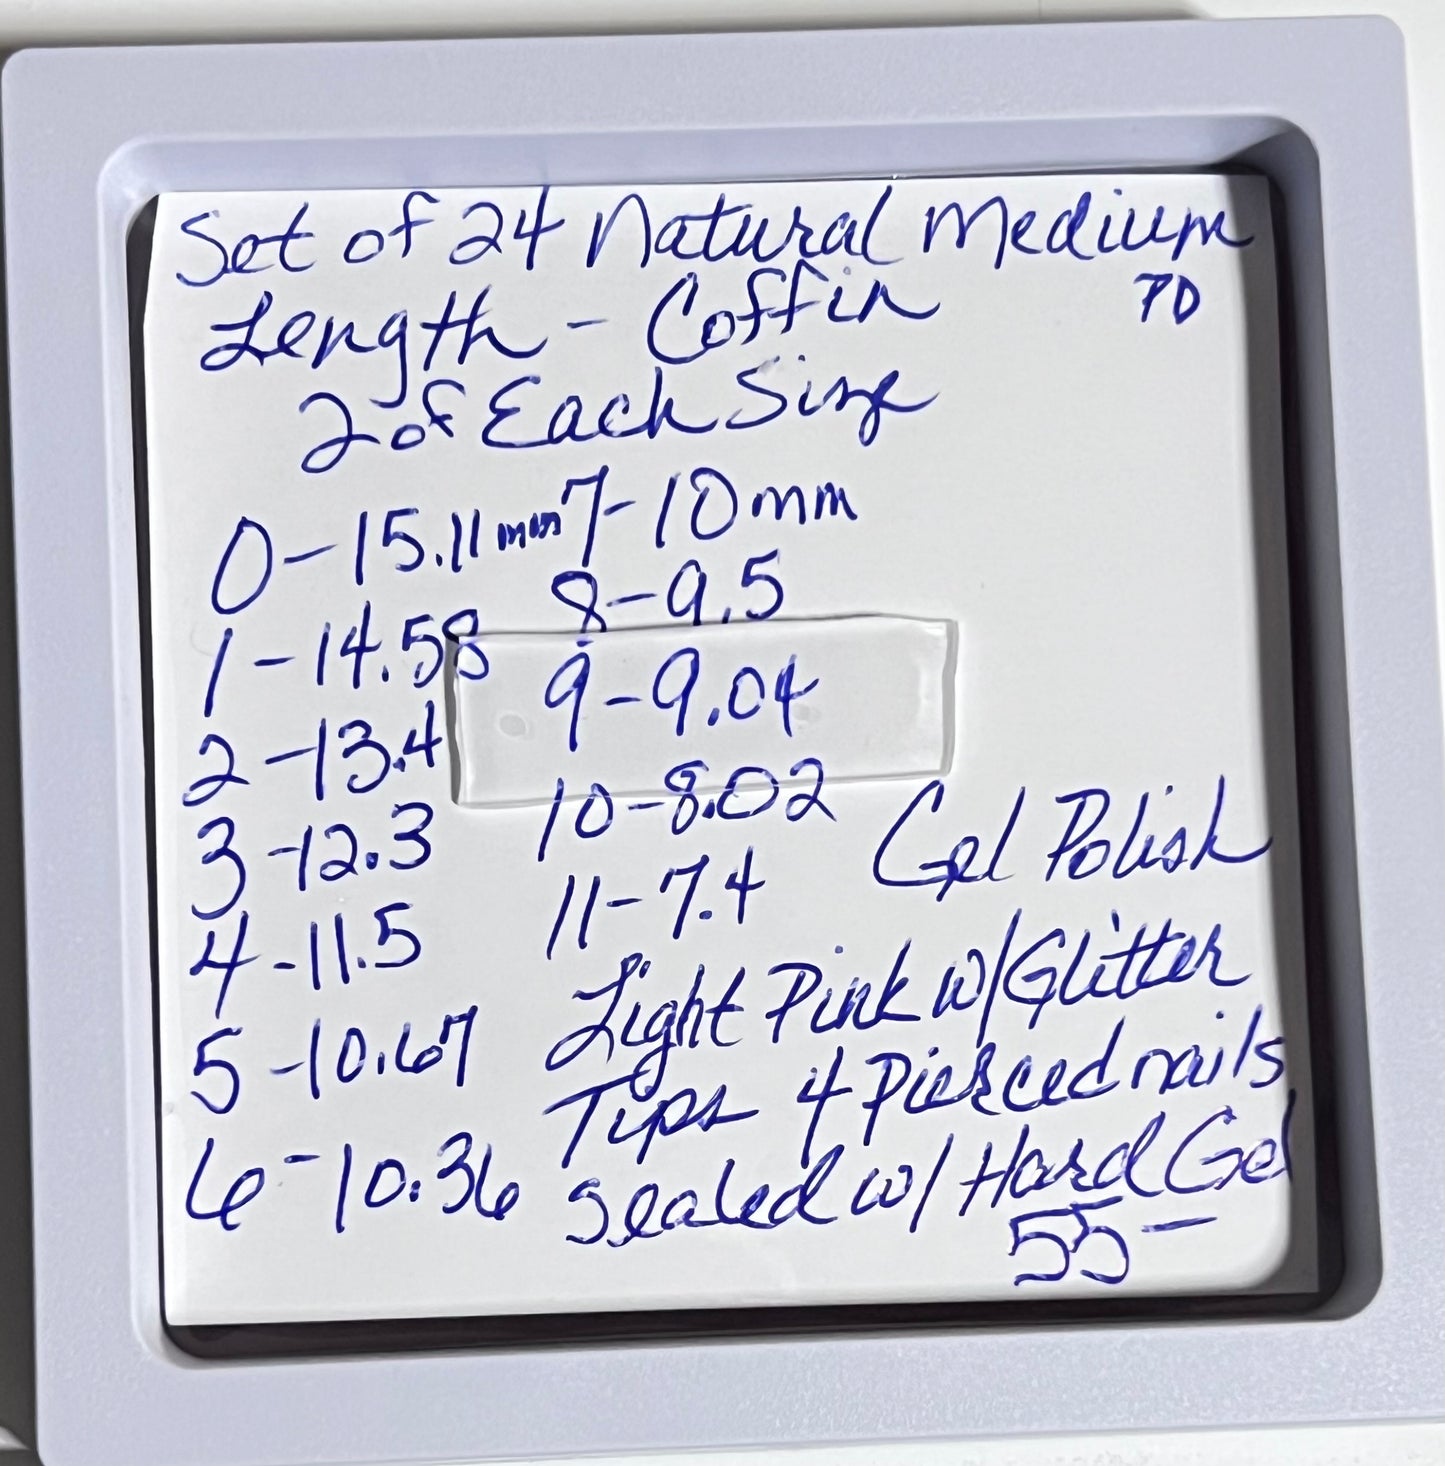 Set of 24 Natural Medium
Length - Coffin PD
2 of Each Size
0-15.11mm 7-10mm
1-14.58 8-9.5
2-13.4 9-9.04
3-12.3 10-8.02
4-11.5 11-7.4
5-10.67
6-10.36
Gel Polish
Light Pink w/Glitter
Tips 4 Pierced nails
Sealed w/ Hard Gel
55-